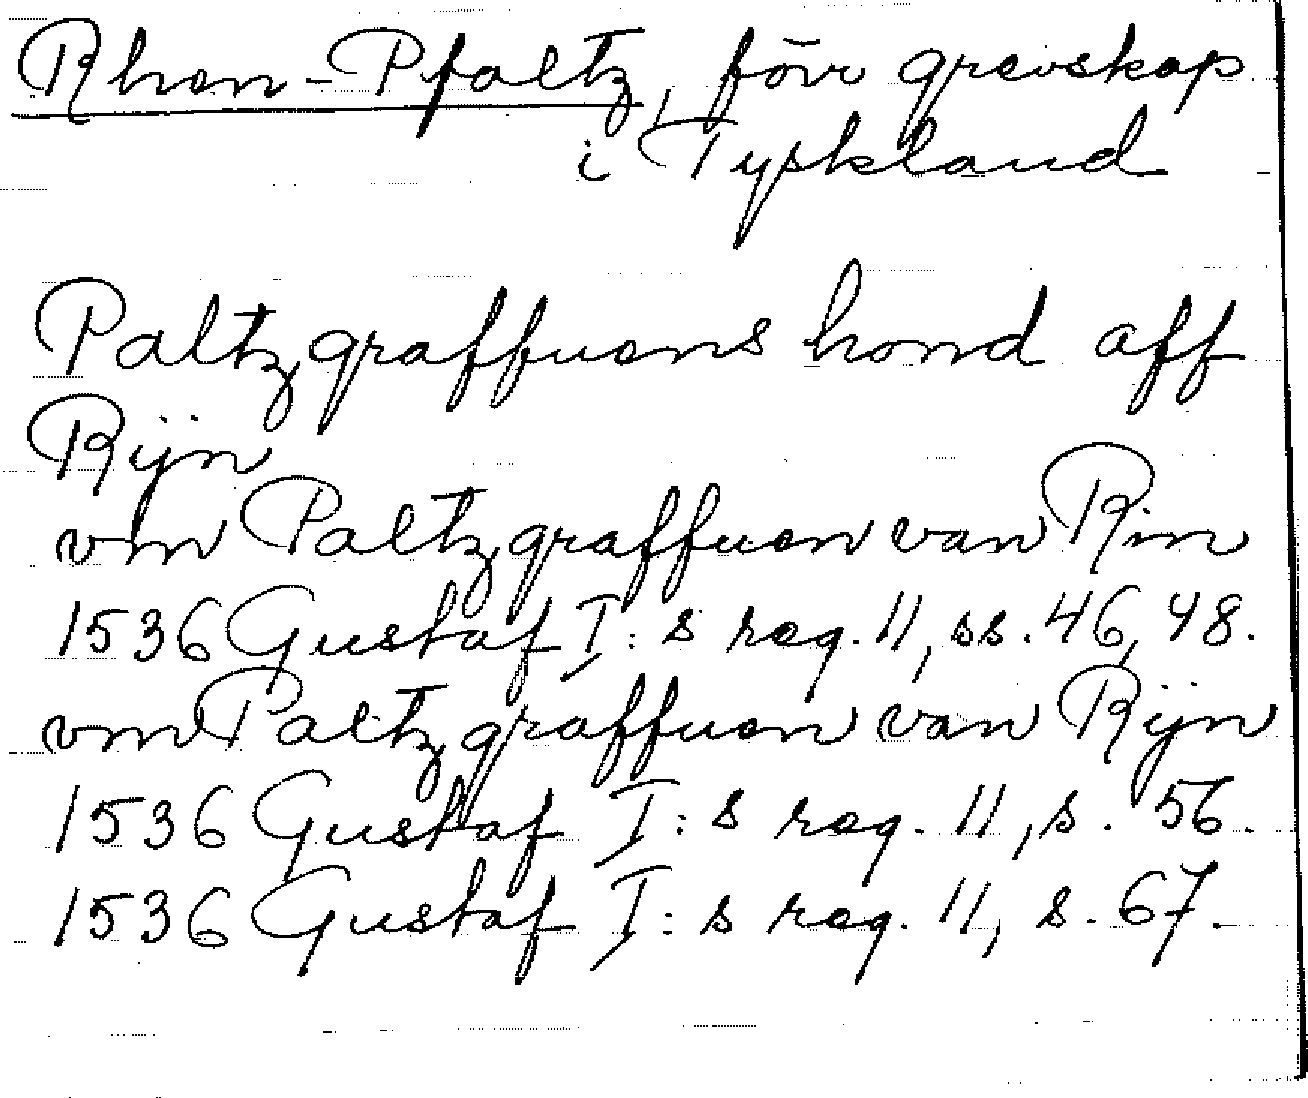 Rhen-Pfaltz, förr grevskap
i Tyskland
Paltzgraffuens hend aff
Rijn
vm Paltzgraffuen van Rin
1536 Gustaf I:s reg. 11, ss. 46, 48.
vm Paltzgraffuen van Rijn
1536 Gustaf I:s reg. 11, s. 56.
1536 Gustaf I:s reg. 11, s. 67.